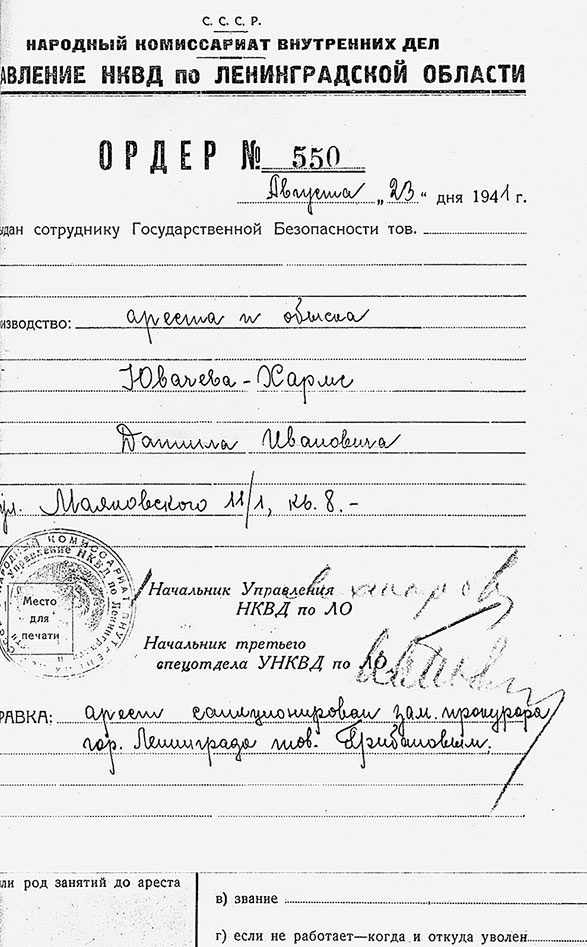 С. С. С. Р.
НАРОДНЫЙ КОМИССАРИАТ ВНУТРЕННИХ ДЕЛ
АВЛЕНИЕ НКВД по ЛЕНИНГРАДСКОЙ ОБЛАСТИ
ОРДЕР № 550
Августа „23“ дня 1941 г.
дан сотруднику Государственной Безопасности тов.
изводство: ареста и обыска
Ювачева-Хармс
Даниила Ивановича
ул. Маяковского 11/1, кв. 8.-
НАРОДНЫЙ КОМИССАРИАТ ВНУТРЕННИХ
Управление НКВД по Ленингр
Место
для
печати
Начальник Управления
НКВД по ЛО
Начальник третьего
спецотдела УНКВД по ЛО
РАВКА: арест санкционирован зам. прокурора
гор. Ленинграда тов. Грибановым.
ли род занятий до ареста
в) звание
г) если не работает—когда и откуда уволен